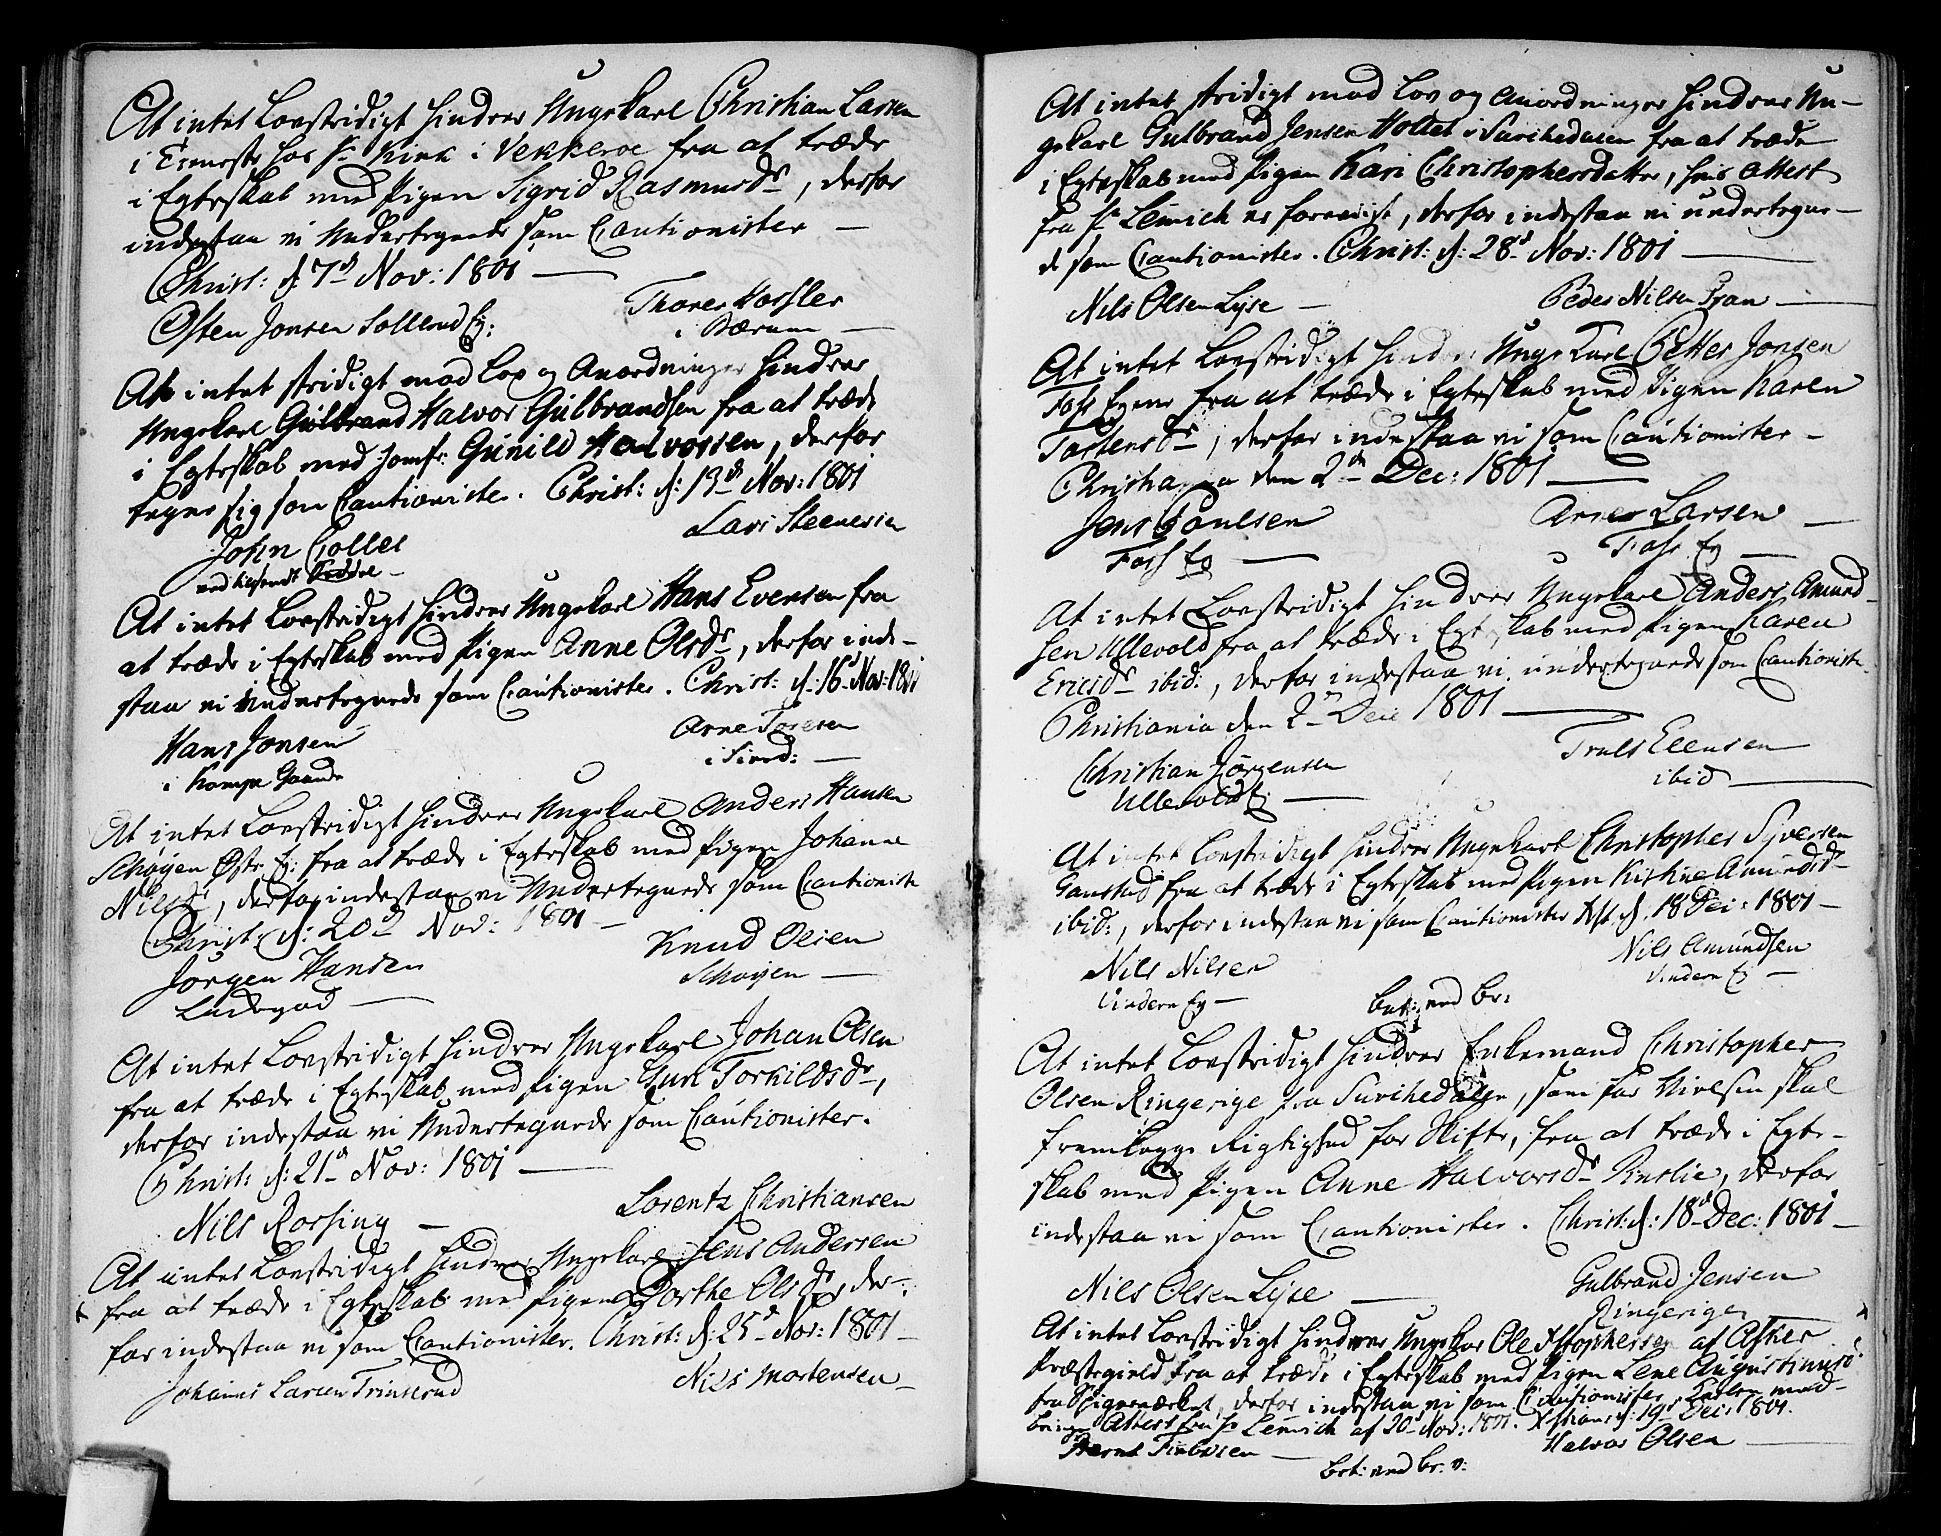 At intet Lovstridigt hindrer Ungekarl Christian Larsen
i Tieneste hos Hr Kirk i Vekkeroe fra at træde
i Egteskab med Pigen Sigrid Rasmusdr, derfor
indestaa vi Undertegnede som Cautionister —
Christ: d: 7d Nov: 1801 —
Thorer Hossler
Osten Jonsen Sollerud Ej:
i Bærum —
At intet stridigt mod Lov og Anordninger hindrer
Ungekarl Gulbrand Halvor Gulbrandsen fra at træde
i Egteskab med Jomfr: Gunild Halvorsen, derfor
tegner sig som Cautionister. Christ: d: 13d Nov: 1801
Lars Steenersen
John Collet
ved hosfendt Seddel —
At intet Lovstridigt hindrer Ungekarl Hans Evensen fra
at træde i Egteskab med Pigen Anne Olsdr, derfor inde-
staa vi Undertegnede som Cautionister. Christ: d: 16d Nov: 1801
Hans Jonsen
Arne Toresen
i Kampe Gaarde
i Sird: —
At intet Lovstridigt hindrer Ungekarl Anders Hansen
Schøyen Østr Ej: fra at træde i Egteskab med Pigen Johanne
Nilsdr, derfor indestaa vi Undertegnede som Cautioniste
Christ: d: 20d Nov: 1801 —
Jørgen Hansen
Knud Olsen
Ladegod —
Schøyen —
At intet Lovstridigt hindrer Ungekarl Johan Olsen
fra at træde i Egteskab med Pigen Guri Torkildsdr,
derfor indestaa vi Undertegnede som Cautionister.
Christ: d: 21d Nov: 1801 —
Lorentz Christiansen
Nils Rorsing —
At intet Lovstridigt hindrer Ungekarl Jens Andersen
fra at træde i Egteskab med Pigen Dorthe Olsdr, der-
for indestaa vi som Cautionister. Christ: d: 25d Nov: 1801 —
Johannes Larsen Trinserud
Nils Mortensen —
At intet stridigt mod Lov og Anordninger hindrer Un-
gekarl Gulbrand Jensen Holtet i Surihedalen fra at træde
i Egteskab med Pigen Kari Christophersdatter, hvis Attest
fra Hr Lemich er foreviist, derfor indestaa vi undertegne-
de som Cautionister. Christ: d: 28d Nov: 1801 —
Nils Olsen Lyse —
Peder Nilsen Fran —
At intet Lovstridigt hindrer Ungekarl Petter Jonsen
Foss Egene fra at træde i Egteskab med Pigen Karen
Tostensdr, derfor indestaa vi som Cautionister —
Christiania den 2dn Dec: 1801 —
Jens Poulsen
Arne Larsen —
Foss Eg —
Foss Eg —
At intet Lovstridigt hindrer Ungekarl Anders Amund-
sen Ullevold fra at træde i Egteskab med Pigen Karen
Ericsdr ibid:, derfor indestaa vi undertegnede som Cautioniste
Christiania den 2n Dec 1801 —
Christian Jørgensen
Truls Ellensen
Ullevold Ej: —
ibid —
At intet Lovstridigt hindrer Ungekarl Christopher Syversen
Gaustad fra at træde i Egteskab med Pigen Kistine Amundsdr
ibid:, derfor indestaa vi som Cautionister Xst: d. 18 Dec: 1801 —
Nils Nilsen
Nils Amundsen
Vindern Eg —
Vindern Ej —
bet: ved br:
At intet Lovstridigt hindrer Enkemand Christopher
Olsen Ringerige fra Surihedalen, som for Nielsen skal
fremlægge Rigtighed for Skifte, fra at træde i Egte-
skab med Pigen Anne Halvorsdr, derfor
indestaa vi som Cautionister. Christ: d: 18d Dec: 1801 —
Nils Olsen Lyse —
Gulbrand Jensen
Ringerige
At intet Lovstridigt hindrer Ungekar Ole Xstophersen af Asker
Præstegield fra at træde i Egteskab med Pigen Lene Augustinusd
fra Sigeroærket, derfor indestaa vi som Cautionister, Karlen med-
bringer Attest fra Hr Lemich af 20d Nov: 1801. Xstiania d: 19d Dec: 1801.
Bernt Finbersen —
Halvor Olsen —
bet: ved br. v: